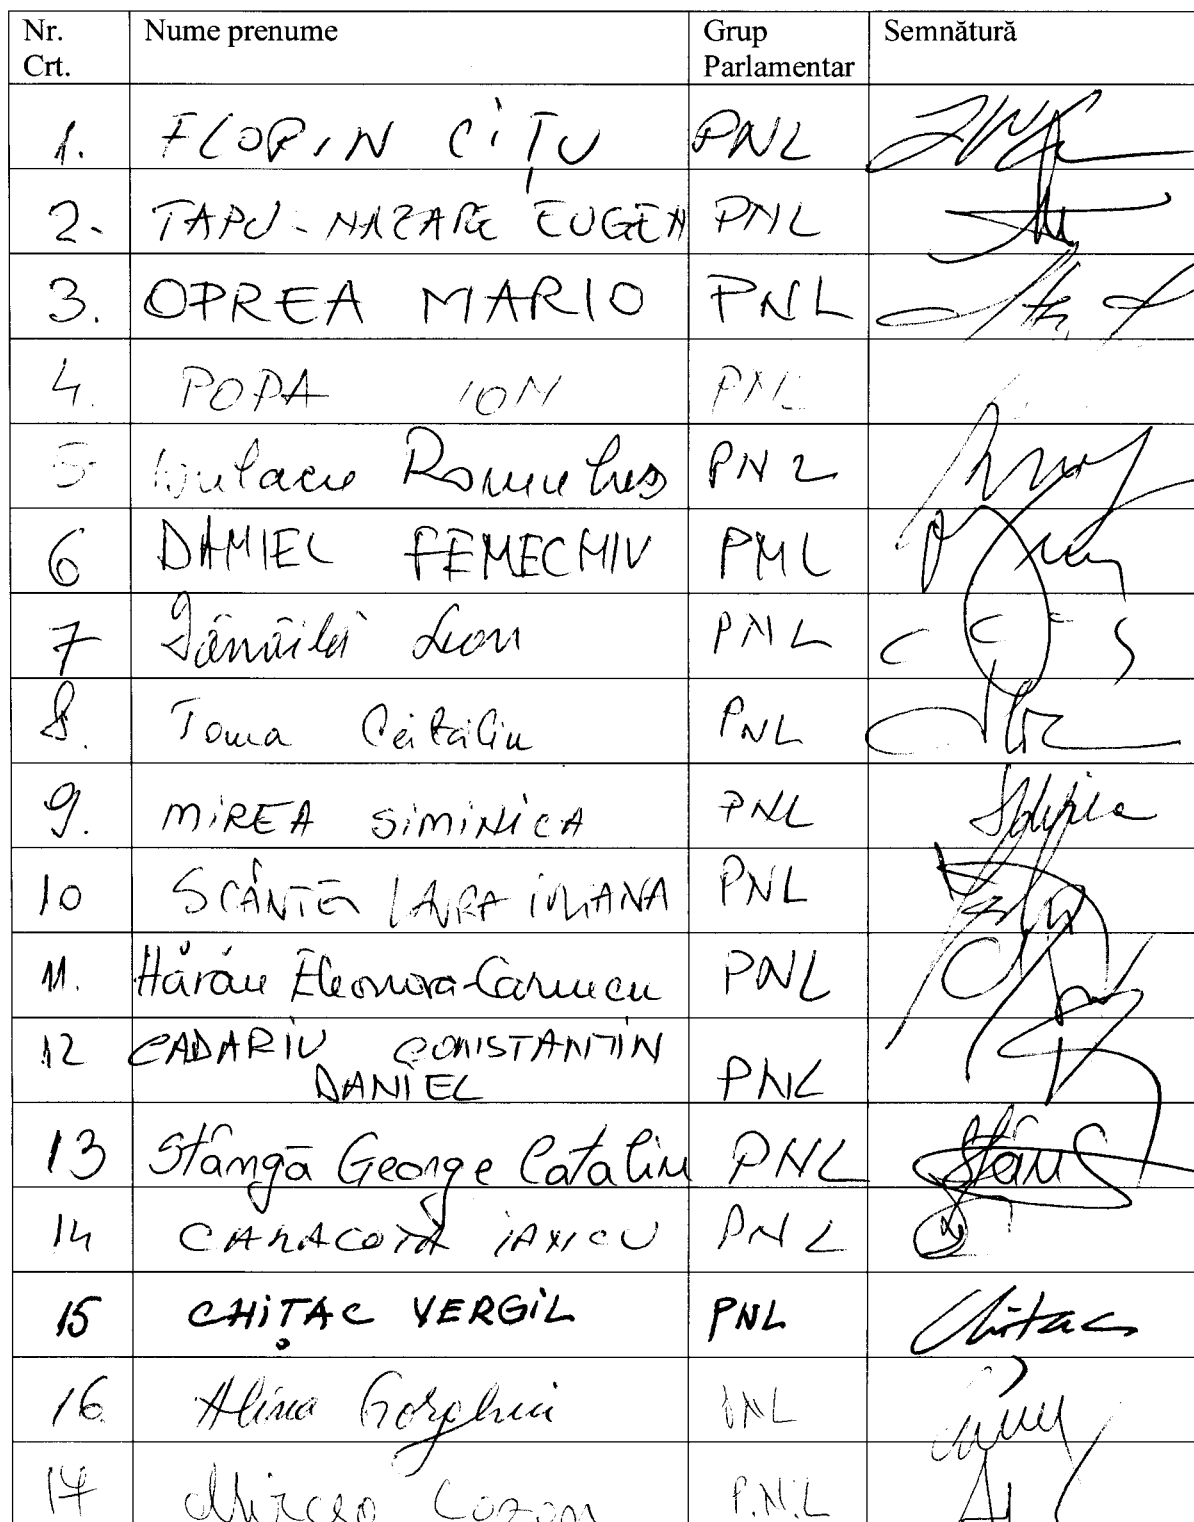 Nr. Crt. Nume prenume Grup Parlamentar Semnătură
1. FLORIN CÎȚU PNL
2. TAPU-NAZARE EUGEN PNL
3. OPREA MARIO PNL
4. POPA ION PNL
5 Bulacu Romulus PNL
6 DANIEL FENECHIU PNL
7 Dănăilă Leon PNL
8. Toma Cătălin PNL
9. MIREA SIMINICA PNL
10 SCÂNTEI LAURA IULIANA PNL
11. Hărău Eleonora-Carmen PNL
12 CADARIU CONSTANTIN DANIEL PNL
13 Stângă George Catalin PNL Stâng
14 CARACOTĂ IANCU PNL
15 CHIȚAC VERGIL PNL Chitac
16 Alina Gorghiu PNL
17 Mircea Cazan P.N.L